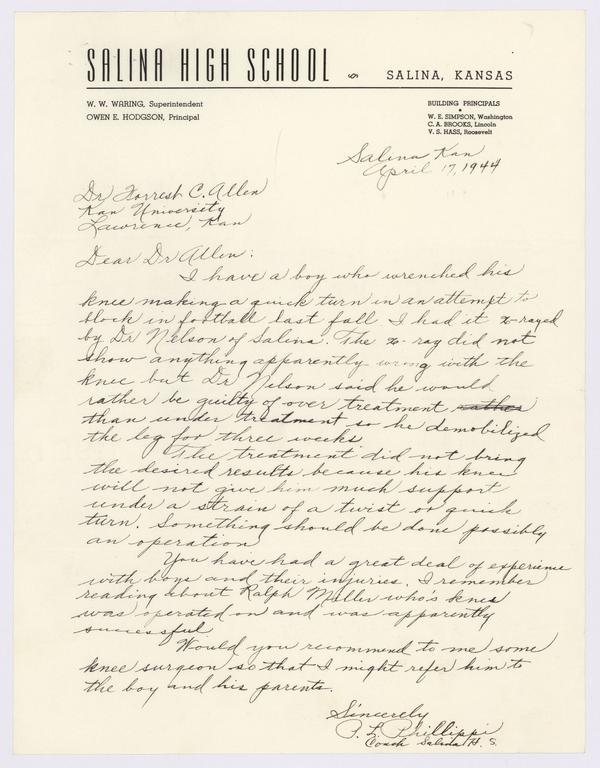 SALINA HIGH SCHOOL SALINA, KANSAS
W. W. WARING, Superintendent
OWEN E. HODGSON, Principal
BUILDING PRINCIPALS
W. E. SIMPSON, Washington
C. A. BROOKS, Lincoln
V. S. HASS, Roosevelt
Salina Kan
April 17, 1944
Dr Forrest C. Allen
Kan University
Lawrence, Kan
Dear Dr Allen:
I have a boy who wrenched his
knee making a quick turn in an attempt to
block in football last fall. I had it x-rayed
by Dr Nelson of Salina. The x-ray did not
show anything apparently wrong with the
knee but Dr Nelson said he would
rather be guilty of over treatment rather
than under treatment so he demobilized
the leg for three weeks
The treatment did not bring
the desired results because his knee
will not give him much support
under a strain of a twist or quick
turn. Something should be done possibly
an operation
You have had a great deal of experience
with boys and their injuries. I remember
reading about Ralph Miller who's knee
was operated on and was apparently
successful
Would you recommend to me some
knee surgeon so that I might refer him to
the boy and his parents.
Sincerely
P. L. Phillippi
Coach Salina H. S.